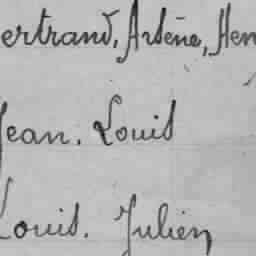 ertrand, Arsène, Hen
Jean. Louis
Louis. Julien